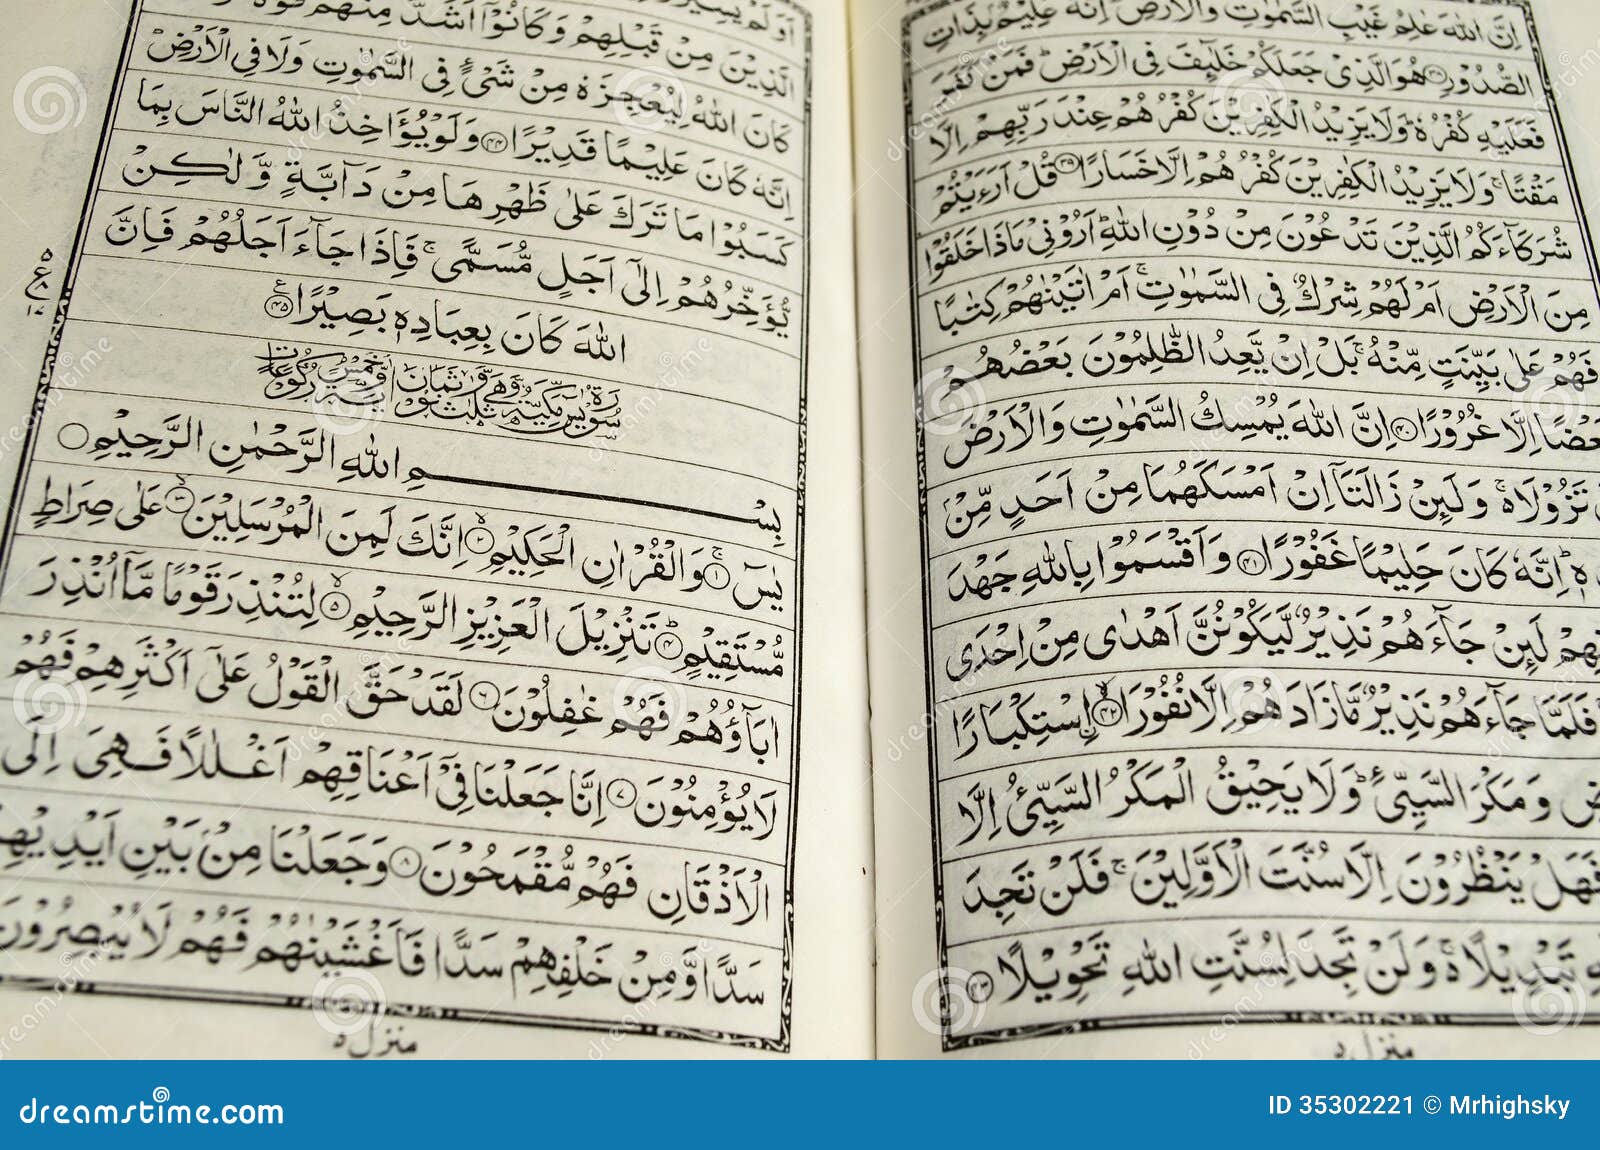 اِنَّ اللّٰهَ عٰلِمُ غَيْبِ السَّمٰوٰتِ وَالْاَرْضِ اِنَّهٗ عَلِيْمٌۢ بِذَاتِ
الصُّدُوْرِ ﴿۳۸﴾ هُوَ الَّذِيْ جَعَلَكُمْ خَلٰٓئِفَ فِى الْاَرْضِ ؕ فَمَنْ كَفَرَ
فَعَلَيْهِ كُفْرُهٗ ؕ وَلَا يَزِيْدُ الْكٰفِرِيْنَ كُفْرُهُمْ عِنْدَ رَبِّهِمْ اِلَّا
مَقْتًا ۚ وَلَا يَزِيْدُ الْكٰفِرِيْنَ كُفْرُهُمْ اِلَّا خَسَارًا ﴿۳۹﴾ قُلْ اَرَءَيْتُمْ
شُرَكَآءَكُمُ الَّذِيْنَ تَدْعُوْنَ مِنْ دُوْنِ اللّٰهِ ؕ اَرُوْنِيْ مَاذَا خَلَقُوْا
مِنَ الْاَرْضِ اَمْ لَهُمْ شِرْكٌ فِى السَّمٰوٰتِ ۚ اَمْ اٰتَيْنٰهُمْ كِتٰبًا
فَهُمْ عَلٰى بَيِّنَتٍ مِّنْهُ ۚ بَلْ اِنْ يَّعِدُ الظّٰلِمُوْنَ بَعْضُهُمْ
بَعْضًا اِلَّا غُرُوْرًا ﴿۴۰﴾ اِنَّ اللّٰهَ يُمْسِكُ السَّمٰوٰتِ وَالْاَرْضَ
تَزُوْلَا ۚ وَلَئِنْ زَالَتَاۤ اِنْ اَمْسَكَهُمَا مِنْ اَحَدٍ مِّنْۢ
اِنَّهٗ كَانَ حَلِيْمًا غَفُوْرًا ﴿۴۱﴾ وَاَقْسَمُوْا بِاللّٰهِ جَهْدَ
لَئِنْ جَآءَهُمْ نَذِيْرٌ لَّيَكُوْنُنَّ اَهْدٰى مِنْ اِحْدَى
فَلَمَّا جَآءَهُمْ نَذِيْرٌ مَّا زَادَهُمْ اِلَّا نُفُوْرًا ﴿۴۲﴾ اسْتِكْبَارًا
وَمَكْرَ السَّيِّئِ ؕ وَلَا يَحِيْقُ الْمَكْرُ السَّيِّئُ اِلَّا
فَهَلْ يَنْظُرُوْنَ اِلَّا سُنَّتَ الْاَوَّلِيْنَ ۚ فَلَنْ تَجِدَ
تَبْدِيْلًا ۚ وَلَنْ تَجِدَ لِسُنَّتِ اللّٰهِ تَحْوِيْلًا ﴿۴۳﴾
منزل ۵
اَوَلَمْ يَسِيْرُوْا
الَّذِيْنَ مِنْ قَبْلِهِمْ وَكَانُوْٓا اَشَدَّ مِنْهُمْ قُوَّةً
كَانَ اللّٰهُ لِيُعْجِزَهٗ مِنْ شَيْءٍ فِى السَّمٰوٰتِ وَلَا فِى الْاَرْضِ
اِنَّهٗ كَانَ عَلِيْمًا قَدِيْرًا ﴿۴۴﴾ وَلَوْ يُؤَاخِذُ اللّٰهُ النَّاسَ بِمَا
كَسَبُوْا مَا تَرَكَ عَلٰى ظَهْرِهَا مِنْ دَآبَّةٍ وَّلٰكِنْ
يُّؤَخِّرُهُمْ اِلٰٓى اَجَلٍ مُّسَمًّى ۚ فَاِذَا جَآءَ اَجَلُهُمْ فَاِنَّ
اللّٰهَ كَانَ بِعِبَادِهٖ بَصِيْرًا ﴿۴۵﴾
سُوْرَةُ يٰسٓ مَكِّيَّةٌ وَّهِيَ ثَلٰثٌ وَّثَمَانُوْنَ اٰيَةً وَّخَمْسُ رُكُوْعَاتٍ
بِسْمِ اللّٰهِ الرَّحْمٰنِ الرَّحِيْمِ
يٰسٓ ۚ ﴿۱﴾ وَالْقُرْاٰنِ الْحَكِيْمِ ﴿۲﴾ اِنَّكَ لَمِنَ الْمُرْسَلِيْنَ ﴿۳﴾ عَلٰى صِرَاطٍ
مُّسْتَقِيْمٍ ﴿۴﴾ تَنْزِيْلَ الْعَزِيْزِ الرَّحِيْمِ ﴿۵﴾ لِتُنْذِرَ قَوْمًا مَّآ اُنْذِرَ
اٰبَآؤُهُمْ فَهُمْ غٰفِلُوْنَ ﴿۶﴾ لَقَدْ حَقَّ الْقَوْلُ عَلٰٓى اَكْثَرِهِمْ فَهُمْ
لَا يُؤْمِنُوْنَ ﴿۷﴾ اِنَّا جَعَلْنَا فِيْٓ اَعْنَاقِهِمْ اَغْلٰلًا فَهِيَ اِلَى
الْاَذْقَانِ فَهُمْ مُّقْمَحُوْنَ ﴿۸﴾ وَجَعَلْنَا مِنْۢ بَيْنِ اَيْدِيْهِمْ
سَدًّا وَّمِنْ خَلْفِهِمْ سَدًّا فَاَغْشَيْنٰهُمْ فَهُمْ لَا يُبْصِرُوْنَ
منزل ۵
dreamstime.com
ID 35302221 © Mrhighsky